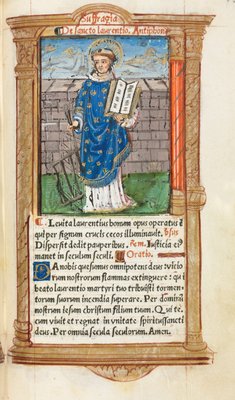 Suffragia
De sancto laurentio. Antiphona
C Levita laurentius bonum opus operatus ē
q̄ per signum crucis cecos illuminauit. ꝟsus
Dispersit dedit pauperibus. Rem. Iusticia eiꝰ
manet in seculum seculi. Oratio.
DA nobis quesumus omnipotens deus viciorum
nostrorum flammas extinguere: qui
beato laurentio martyri tuo tribuisti tormentorum
suorum incendia superare. Per dominū
nostrum iesum christum filium tuum. Qui tecum
viuit et regnat in vnitate spiritussancti
deus. Per omnia secula seculorum. Amen.